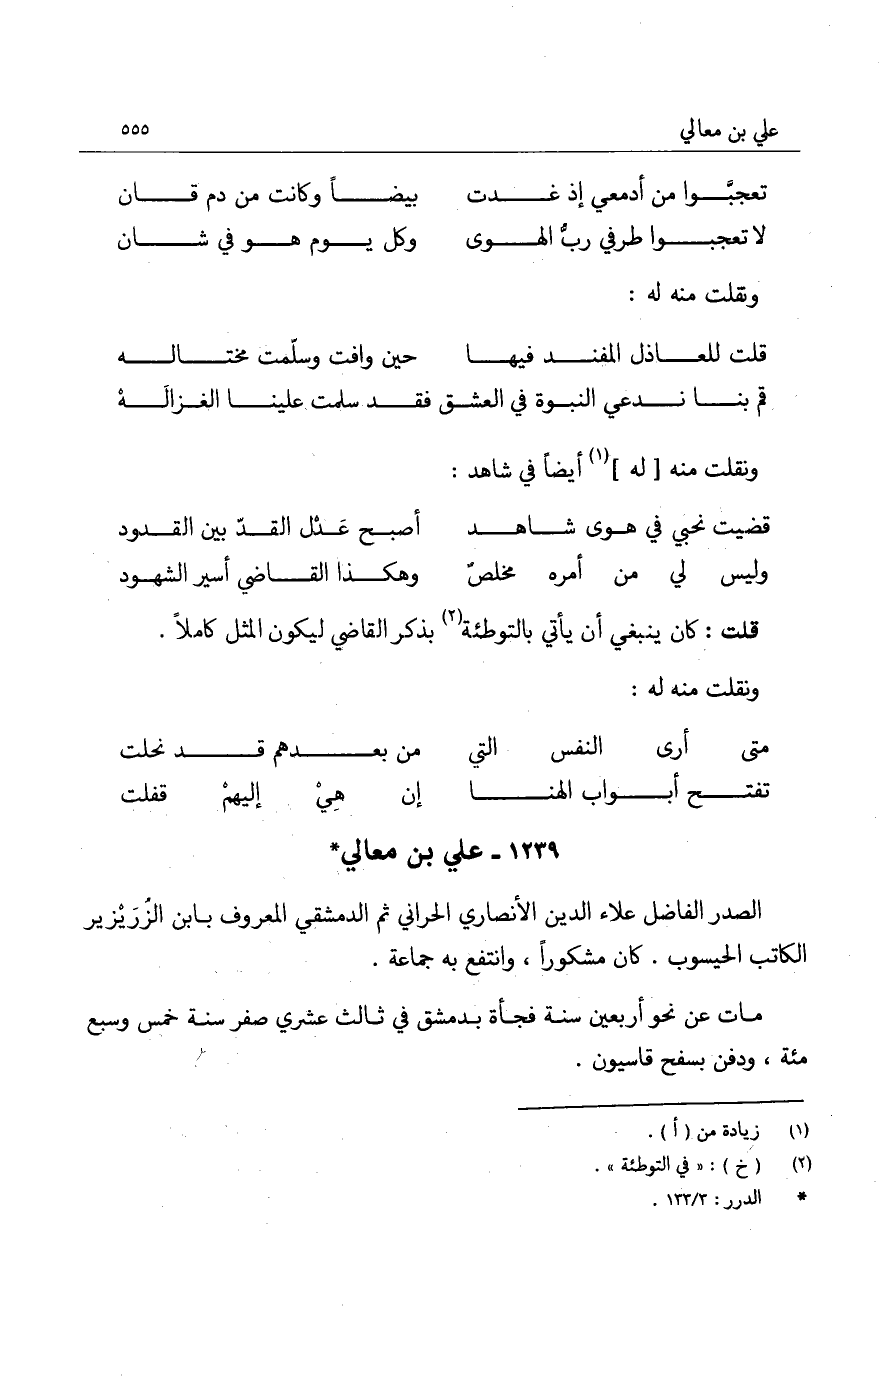 علي بن معالي ٥٥٥
تعجبَّوا من أدمعي إذ غدت بيضاً وكانت من دم قان
لا تعجبوا طرفي ربُّ الهوى وكل يوم هو في شان
ونقلت منه له :
قلت للعاذل المفند فيها حين وافت وسلّمت مختاله
قم بنا ندعي النبوة في العشق فقد سلمت علينا الغزالَهْ
ونقلت منه [ له ](١) أيضاً في شاهد :
قضيت نحبي في هوى شاهد أصبح عَدْل القدّ بين القدود
وليس لي من أمره مخلصٌ وهكذا القاضي أسير الشهود
قلت : كان ينبغي أن يأتي بالتوطئة(٢) بذكر القاضي ليكون المثل كاملاً .
ونقلت منه له :
متى أرى النفس التي من بعدهم قد نحلت
تفتح أبواب الهنا إن هِيْ إليهمْ قفلت
١٢٣٩ ـ علي بن معالي*
الصدر الفاضل علاء الدين الأنصاري الحراني ثم الدمشقي المعروف بابن الزُرَيْزير
الكاتب الحيسوب . كان مشكوراً ، وانتفع به جماعة .
مات عن نحو أربعين سنة فجأة بدمشق في ثالث عشري صفر سنة خمس وسبع
مئة ، ودفن بسفح قاسيون .
(١) زيادة من ( أ ) .
(٢) ( خ ) : « في التوطئة » .
* الدرر : ١٣٣/٣ .